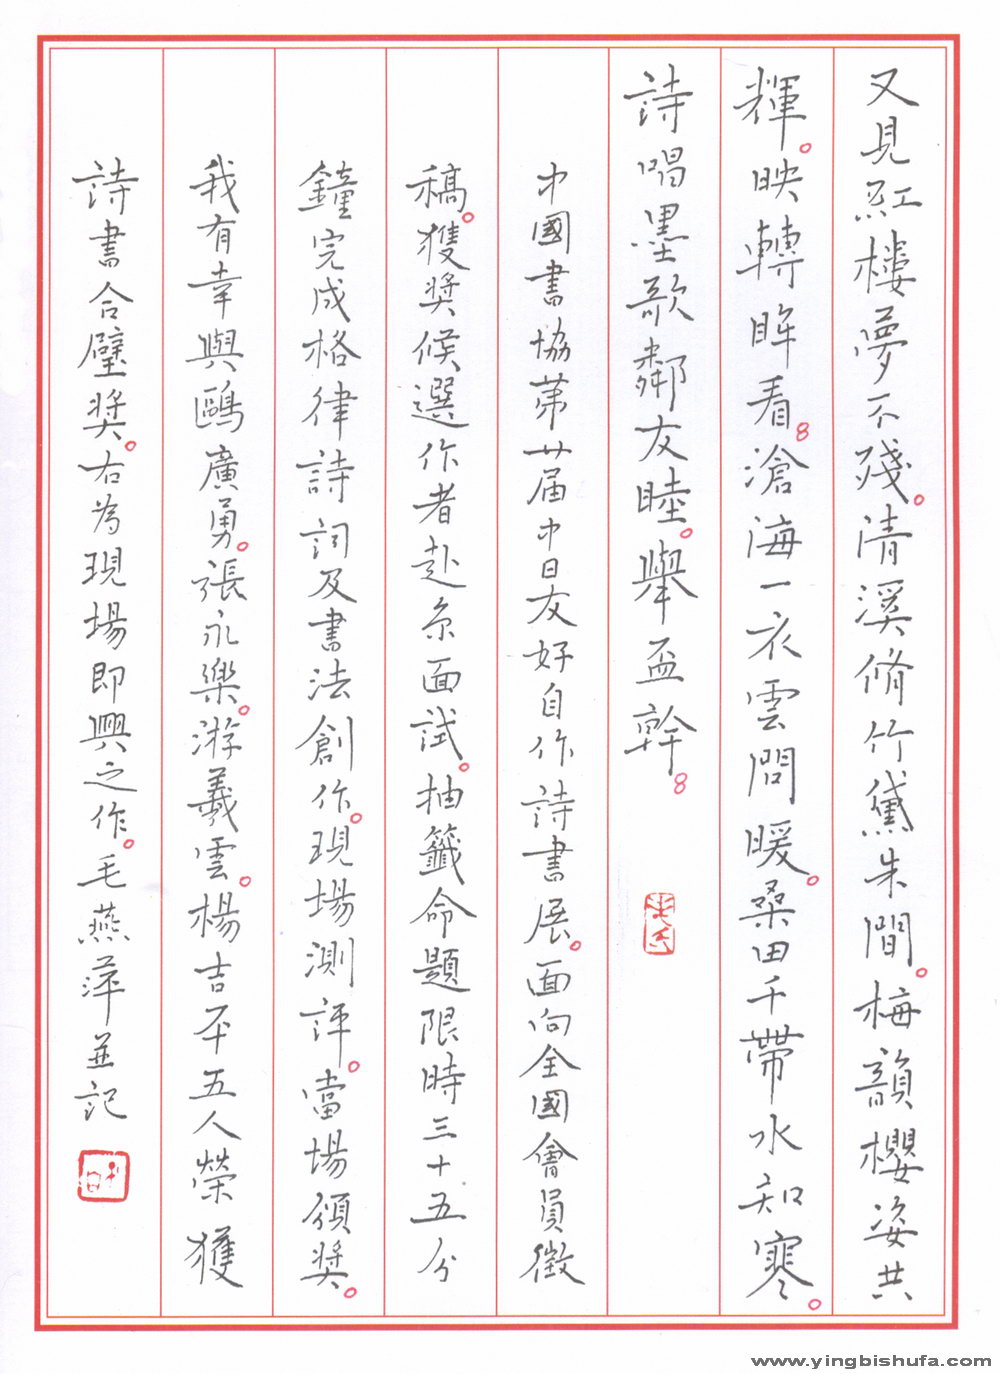 又見紅樓夢不殘。清溪脩竹黛朱間。梅韻櫻姿共
輝。映轉眸看。滄海一衣雲問暖。桑田千帶水知寒。
詩唱墨歌鄰友睦。舉盃幹。
中國書協第廿届中日友好自作詩書展。面向全國會員徵
稿。獲奬候選作者赴京面試。抽籤命題限時三十五分
鐘完成格律詩詞及書法創作。現場測評。當場頒奬。
我有幸與鷗廣勇。張永樂。游羲雲。楊吉平五人榮獲
詩書合璧奬。右為現場即興之作。毛燕萍並記
www.yingbishufa.com